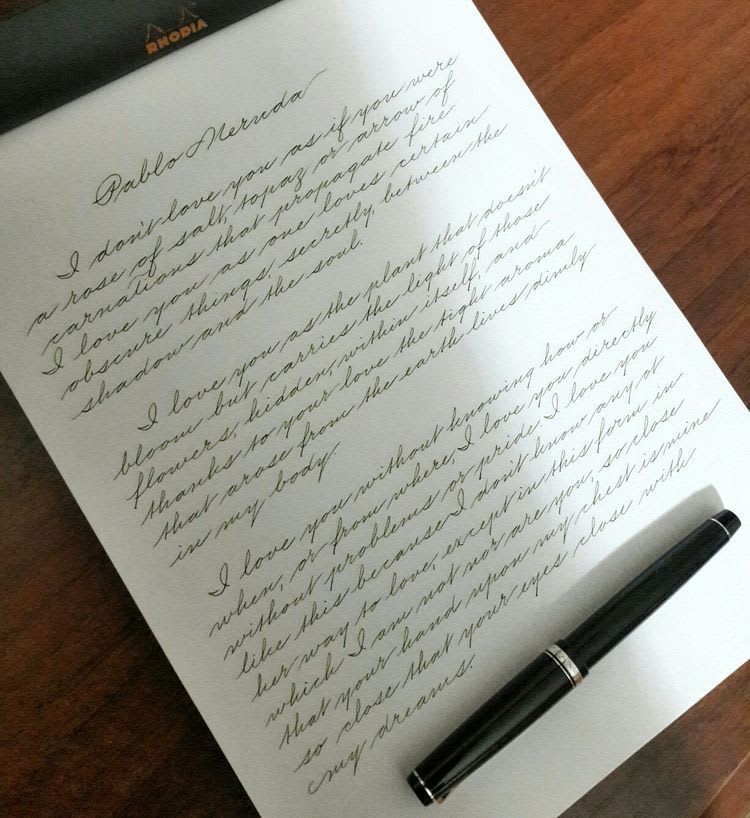 RHODIA
Pablo Neruda
I don't love you as if you were
a rose of salt, topaz or arrow of
carnations that propagate fire.
I love you as one loves certain
obscure things, secretly, between the
shadow and the soul.
I love you as the plant that doesn't
bloom but carries the light of those
flowers, hidden, within itself, and
thanks to your love the tight aroma
that arose from the earth lives dimly
in my body.
I love you without knowing how or
when, or from where, I love you directly
without problems or pride. I love you
like this because I don't know any ot
her way to love, except in this form in
which I am not nor are you, so close
that your hand upon my chest is mine
so close that your eyes close with
my dreams.